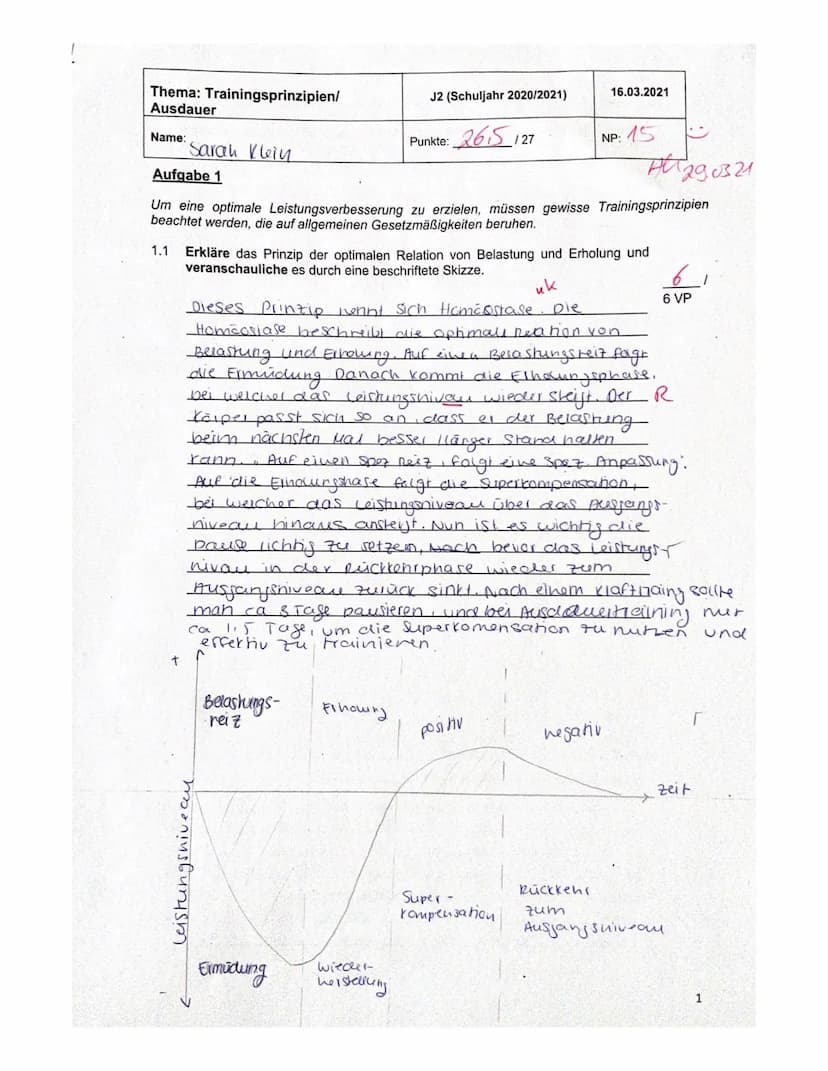 Thema: Trainingsprinzipien/
Ausdauer
J2 (Schuljahr 2020/2021)
16.03.2021
Name: Sarah Klein
Punkte: 26,5 / 27
NP: 15 :)
29.03.21
Aufgabe 1
Um eine optimale Leistungsverbesserung zu erzielen, müssen gewisse Trainingsprinzipien
beachtet werden, die auf allgemeinen Gesetzmäßigkeiten beruhen.
1.1 Erkläre das Prinzip der optimalen Relation von Belastung und Erholung und
veranschauliche es durch eine beschriftete Skizze.
6 /
6 VP
uk
Dieses Prinzip nennt sich Homöostase. Die
Homöostase beschreibt die optimale Reation von
Belastung und Erholung. Auf einen Belastungsreiz folgt
die Ermüdung. Danach kommt die Erholungsphase,
bei welcher das Leistungsnivau wieder steigt. Der R
Körper passt sich so an, dass er der Belastung
beim nächsten Mal besser / länger Stand halten
kann. „Auf einen spez Reiz, folgt eine spez. Anpassung".
Auf die Erholungshase folgt die Superkompensation,
bei welcher das Leistungsniveau über das Ausgangs-
niveau hinaus ansteigt. Nun ist es wichtig die
Pause richtig zu setzen, bevor das Leistungs-
nivau in der Rückkehrphase wieder zum
Ausgangsniveau zurück sinkt. Nach einem Kraftraing sollte
man ca 3 Tage pausieren, und bei Ausdauertraining nur
ca 1,5 Tage, um die Superkomensation zu nutzen und
effektiv zu trainieren.
+
Belastungs-
reiz
Erholung
positiv
negativ
Zeit
Leistungsniveau
Super-
kompensation
Rückkehr
zum
Ausgangsniveau
Ermüdung
Wieder-
herstellung
-
1